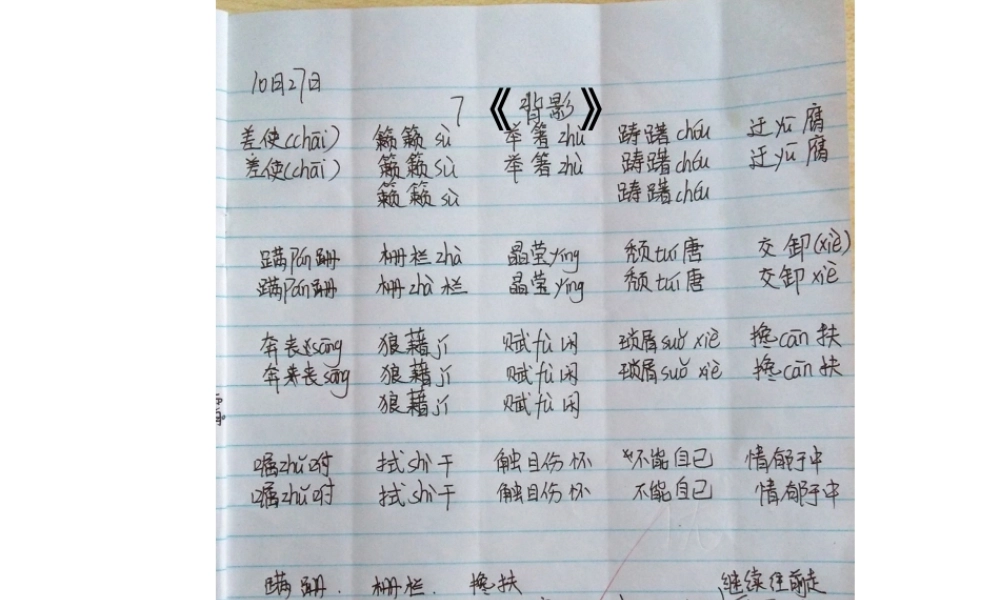 10日27日
7 《背影》
差使(chāi) 簌簌 sù 举箸 zhù 踌躇 chóu 迂 yū 腐
差使(chāi) 簌簌 sù 举箸 zhù 踌躇 chóu 迂 yū 腐
簌簌 sù 踌躇 chóu
蹒 pán 跚 栅栏 zhà 晶莹 yíng 颓 tuí 唐 交卸(xiè)
蹒 pán 跚 栅 zhà 栏 晶莹 yíng 颓 tuí 唐 交卸 xiè
奔丧 sāng 狼藉 jí 赋 fù 闲 琐屑 suǒ xiè 搀 cān 扶
奔来丧 sāng 狼藉 jí 赋 fù 闲 琐屑 suǒ xiè 搀 cān 扶
狼藉 jí 赋 fù 闲
嘱 zhǔ 咐 拭 shì 干 触目伤怀 不能自已 情郁于中
嘱 zhǔ 咐 拭 shì 干 触目伤怀 不能自已 情郁于中
蹒跚. 栅栏. 搀扶 继续往前走